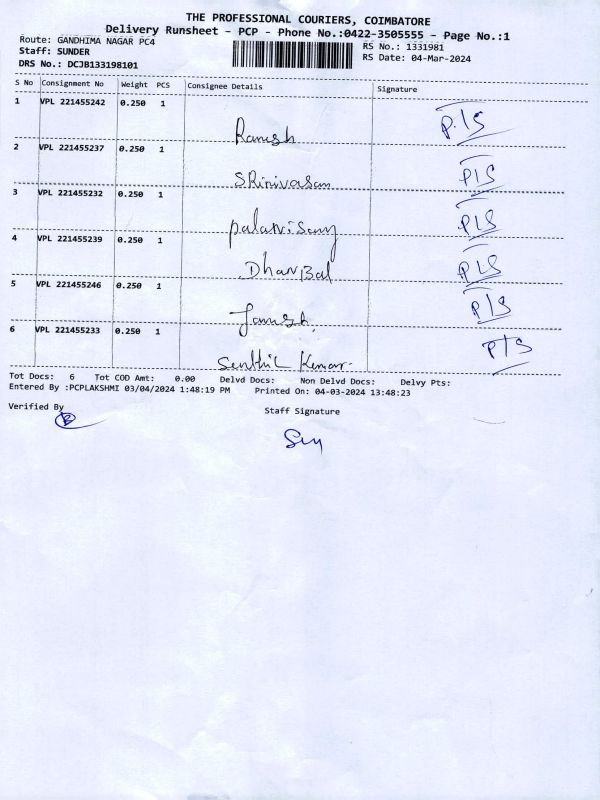 THE PROFESSIONAL COURIERS, COIMBATORE
Delivery Runsheet - PCP - Phone No.:0422-3505555 - Page No.:1
Route: GANDHIMA NAGAR PC4
RS No.: 1331981
Staff: SUNDER
RS Date: 04-Mar-2024
DRS No.: DCJB133198101
S No Consignment No Weight PCS Consignee Details Signature
1 VPL 221455242 0.250 1
Ramesh P/S
2 VPL 221455237 0.250 1
SRinivasan P/S
3 VPL 221455232 0.250 1
palaniSamy P/S
4 VPL 221455239 0.250 1
DhanBal P/S
5 VPL 221455246 0.250 1
P/S
6 VPL 221455233 0.250 1
Senthil Kumar P/S
Tot Docs: 6 Tot COD Amt: 0.00 Delvd Docs: Non Delvd Docs: Delvy Pts:
Entered By :PCPLAKSHMI 03/04/2024 1:48:19 PM Printed On: 04-03-2024 13:48:23
Verified By
Staff Signature